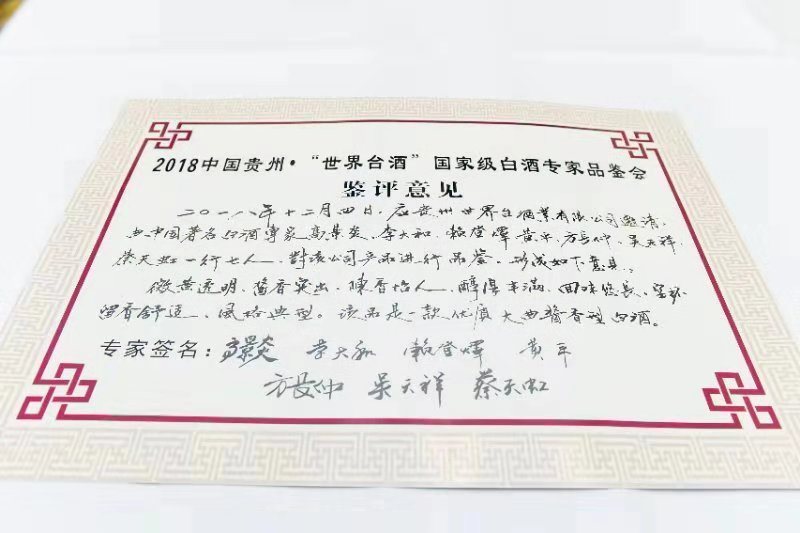 2018中国贵州·“世界台酒”国家级白酒专家品鉴会
鉴评意见
二〇一八年十二月四日,应贵州世界台酒业有限公司邀请,
由中国著名白酒专家高景炎、李大和、賴登燡、黄平、方長仲、吴天祥、
蔡天虹一行七人,對该公司产品进行品鉴。形成如下意見。
微黄透明,酱香突出,陳香怡人,醇厚丰满,回味悠长,空杯
留香舒适,風格典型。该品是一款优质大曲醬香型白酒。
专家签名:高景炎 李大和 賴登燡 黄平
方長仲 吴天祥 蔡天虹